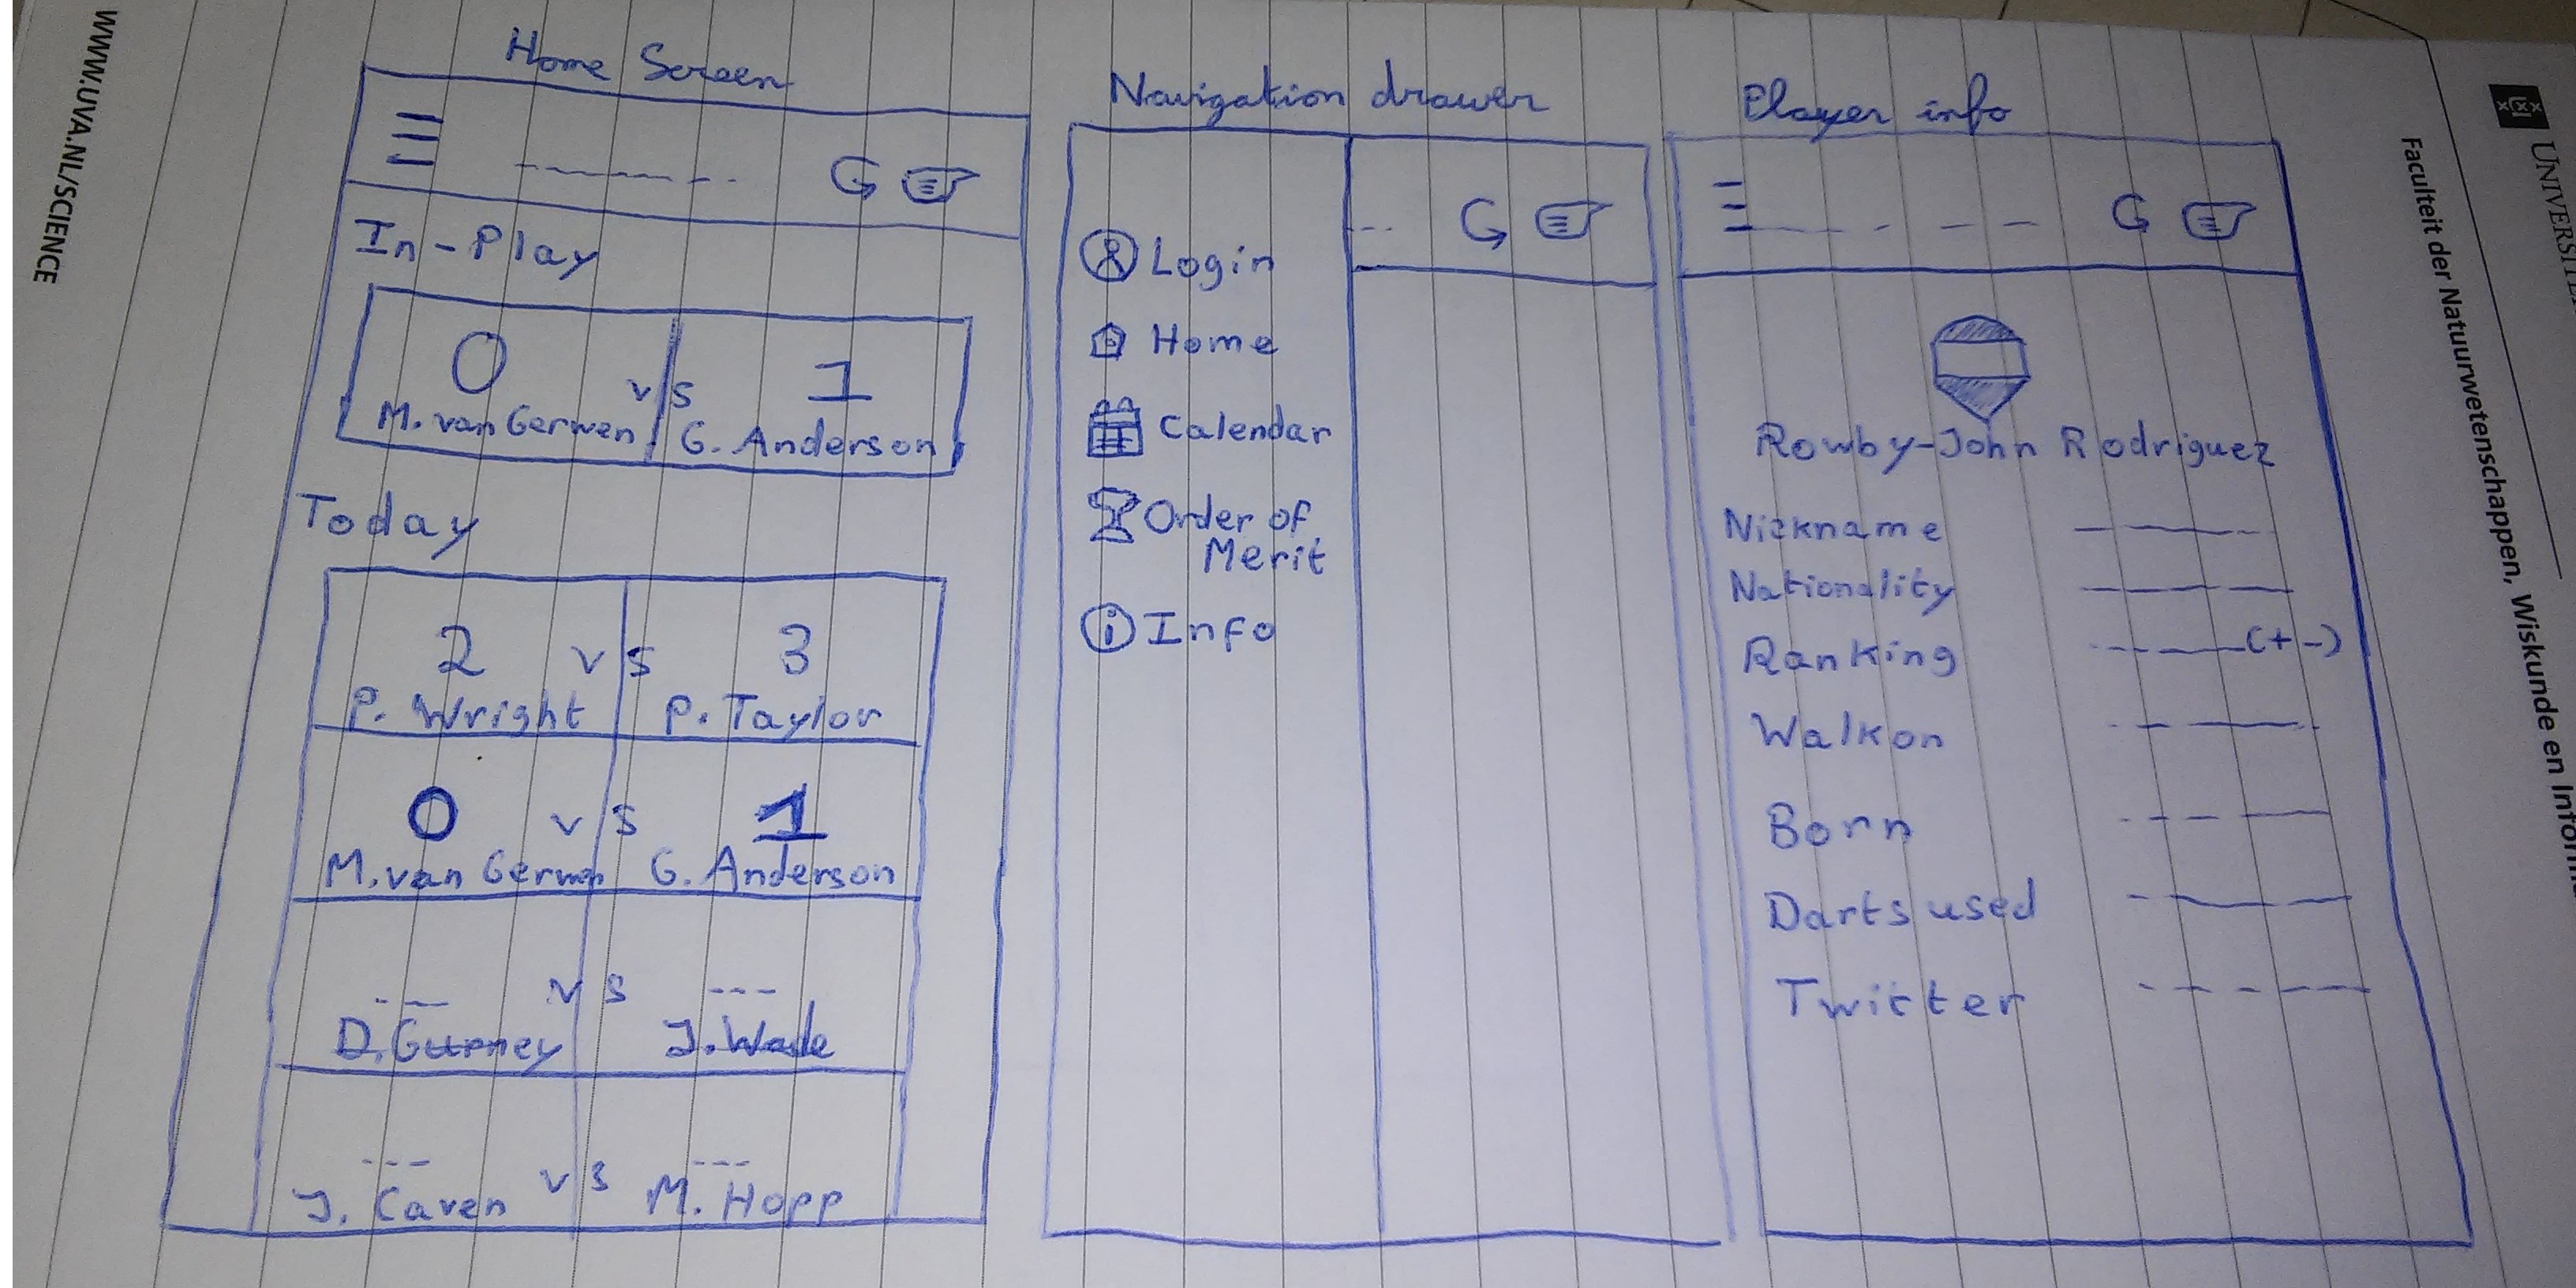 WWW.UVA.NL/SCIENCE
Home Screen
In-Play
0 vs 1
M. van Gerwen G. Anderson
Today
2 vs 3
P. Wright P. Taylor
0 vs 1
M. van Gerwen G. Anderson
--- vs ---
D. Gurney J. Wade
--- vs ---
J. Caven M. Hopp
Navigation drawer
Login
Home
Calendar
Order of
Merit
Info
Player info
Rowby-John Rodriguez
Nickname
Nationality
Ranking (+ -)
Walkon
Born
Darts used
Twitter
Faculteit der Natuurwetenschappen, Wiskunde en